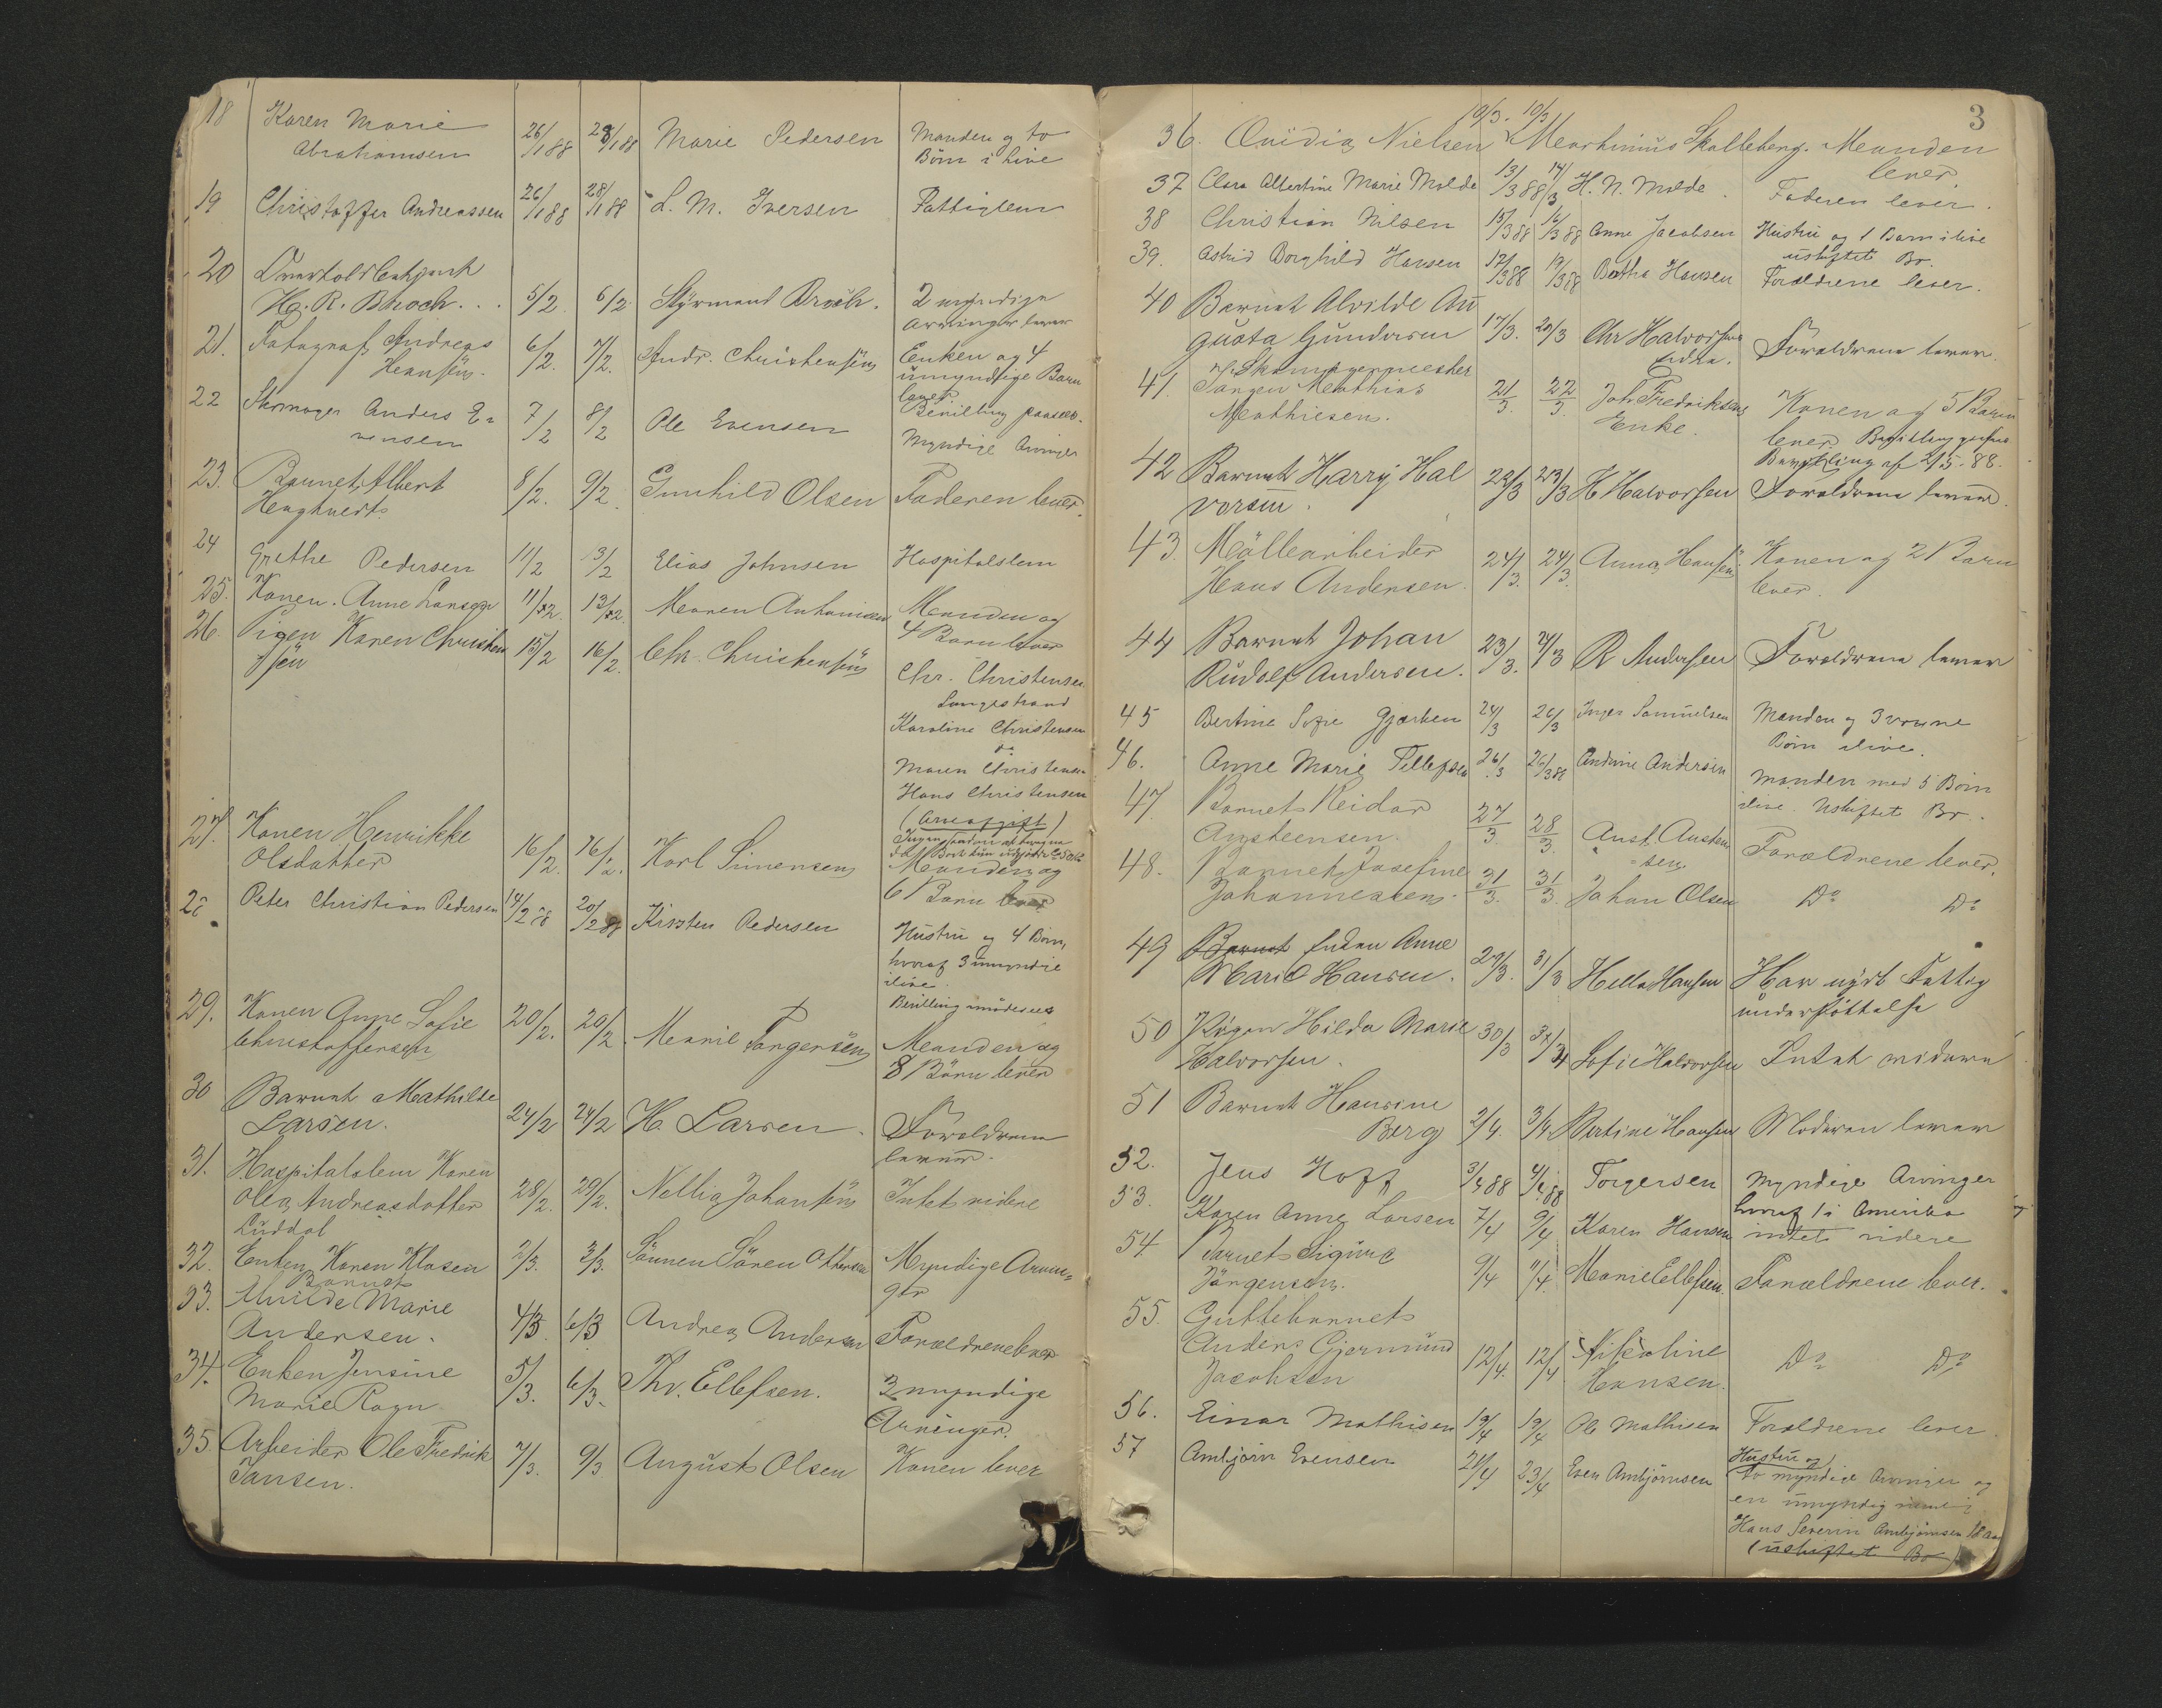 18 Karen Marie
Abrahamsen 26/1 88 28/1 88 Marie Pedersen Manden og to
Børn i live
19 Christoffer Andreassen 26/1 88 28/1 88 L. M. Iversen Fattiglem
20
H. R. Broch . . 5/2 6/2 Styrmand Broch. 2 myndige
Arvinger lever
21. Fotograf Andreas
Hansen. 6/2. 7/2. Andr. Christensen Enken og 4
umyndige Barn
lever.
22 Skomager Anders E=
vensen 7/2 8/2 Ole Evensen Bevilling
Myndige Arvinger
23. Barnet Albert
8/2. 9/2. Gunhild Olsen Faderen lever.
24 Grethe Pedersen 11/2 13/2 Elias Johnsen Hospitalslem
25. Konen Anne 11/2. 13/2. Maren Manden og
4 Barn lever
26. Pigen Karen Christen
sen 15/2 16/2. Chr. Christensen
Chr. Christensen
Langestrand
Karoline Christensen
do
Maren Christensen
Hans Christensen
(Arveafgift)
27. Konen Henrikke
Olsdatter 16/2. 16/2. Karl Simensen Manden og
6 Barn lever
28. Peter Christian Pedersen 14/2 88 20/2 88 Kirsten Pedersen Hustru og 4 Børn,
hvoraf 3 umyndige
ilive.
Bevilling
29. Konen Anne Sofie
Christoffersen 20/2. 20/2. Marie Torgersen Manden og
8 Børn lever
30 Barnet Mathilde
Larsen. 24/2 24/2 H. Larsen. Forældrene
lever.
31. Hospitalslem Karen
Olea Andreasdatter
Luddal 28/2. 29/2. Nellia Johansen Intet videre
32. Enken Karen Klasen 2/3. 3/3. Sønnen Søren Ottersen Myndige Arvin=
ger
33. Barnet
Alvilde Marie
Andersen. 4/3 6/3 Andrea Andersen Forældrene lever
34. Enken Jensine
Marie Ragn 5/3. 6/3. Thv. Ellefsen. 3 myndige
Arvinger.
35 Arbeider Ole Fredrik
Jansen. 7/3. 9/3 August Olsen Konen lever
3
36. Nielsen 10/3. 10/3 Marthinius Skalleberg. Manden
lever.
37 Clara Albertine Marie Molde 13/3 88 14/3 H. N. Molde. Faderen lever.
38 Christian Nilsen 15/3 88 16/3 88 Anne Jacobsen Hustru og 1 Barn ilive
uskiftet Bo.
39. Astrid Borghild Hansen 17/3 88 19/3 88 Berthe Hansen Forældrene lever.
40 Barnet Alvilde Au
gusta Gundersen 17/3. 20/3 Chr Halvorsen
Forældrene lever.
41. Skomagermester
Jørgen Mathias
Mathiesen. 21/3. 22/3. Joh. Fredriksens
Enke. Konen og 5 Barn
lever
Bevilling af 2/5. 88.
42 Barnet Harry Hal
vorsen. 22/3 23/3 H Halvorsen Forældrene lever.
43. Møllearbeider
Hans Andersen. 24/3. 24/3. Anna Hansen. Konen og 2 Barn
lever.
44 Barnet Johan
Rudolf Andersen. 23/3. 24/3 R Andersen Forældrene lever
45 Bertine Sofie Gjerken 24/3 26/3 Inger Samuelsen Manden og 3 voxne
Børn ilive.
46. Anne Marie Tellefsen 26/3 26/3 88 Andrine Andersen Manden med 5 Børn
ilive. Uskiftet Bo.
47. Barnet Reidar
Austeensen. 27/3 28/3. Aust. Austen
=sen. Forældrene lever.
48. Barnet Josefine
Johannessen. 31/3. 31/3. Johan Olsen Do Do
49 Barnet Enken Anne
Marie Hansen. 29/3. 31/3 Hella Hansen Har nydt Fattig
understøttelse
50 Pigen Hilda Marie
Halvorsen. 30/3 Sofie Halvorsen Intet videre
51 Barnet Hansine
Berg 2/4. 3/4. Bertine Hansen Moderen lever
52. Jens Hoff 3/4 88 4/4 88 Torgersen Myndige Arvinger
hvoraf 1 i Amerika
53. Karen Anne Larsen 7/4 9/4 Karen Hansen intet videre
54 Barnet Sigurd
Jørgensen. 9/4 11/4. Marie Ellefsen. Forældrene lever.
55. Guttebarnet
Anders Gjermund
Jacobsen 12/4. 12/4 Nikoline
Hansen. Do Do
56. Einar Mathisen 19/4 19/4 Ole Mathisen Forældrene lever.
57 Ambjørn Evensen 21/4 23/4 Even Ambjørnsen Hustru og
to myndige Arvinger og
en umyndig nemlig
Hans Severin Ambjørnsen 18 aar
(uskiftet Bo)